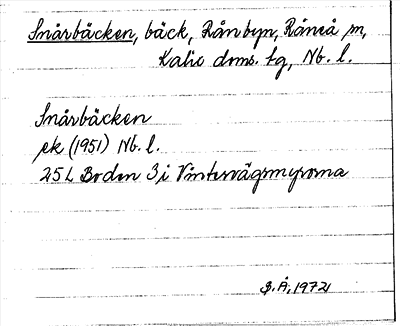 Snårbäcken, bäck, Rånbyn, Råneå sn,
Kalix doms. tg, Nb. l.
Snårbäcken
ek (1951) Nb. l.
25 L Boden 3 i Vintervägsmyrorna
S. Å. 1972